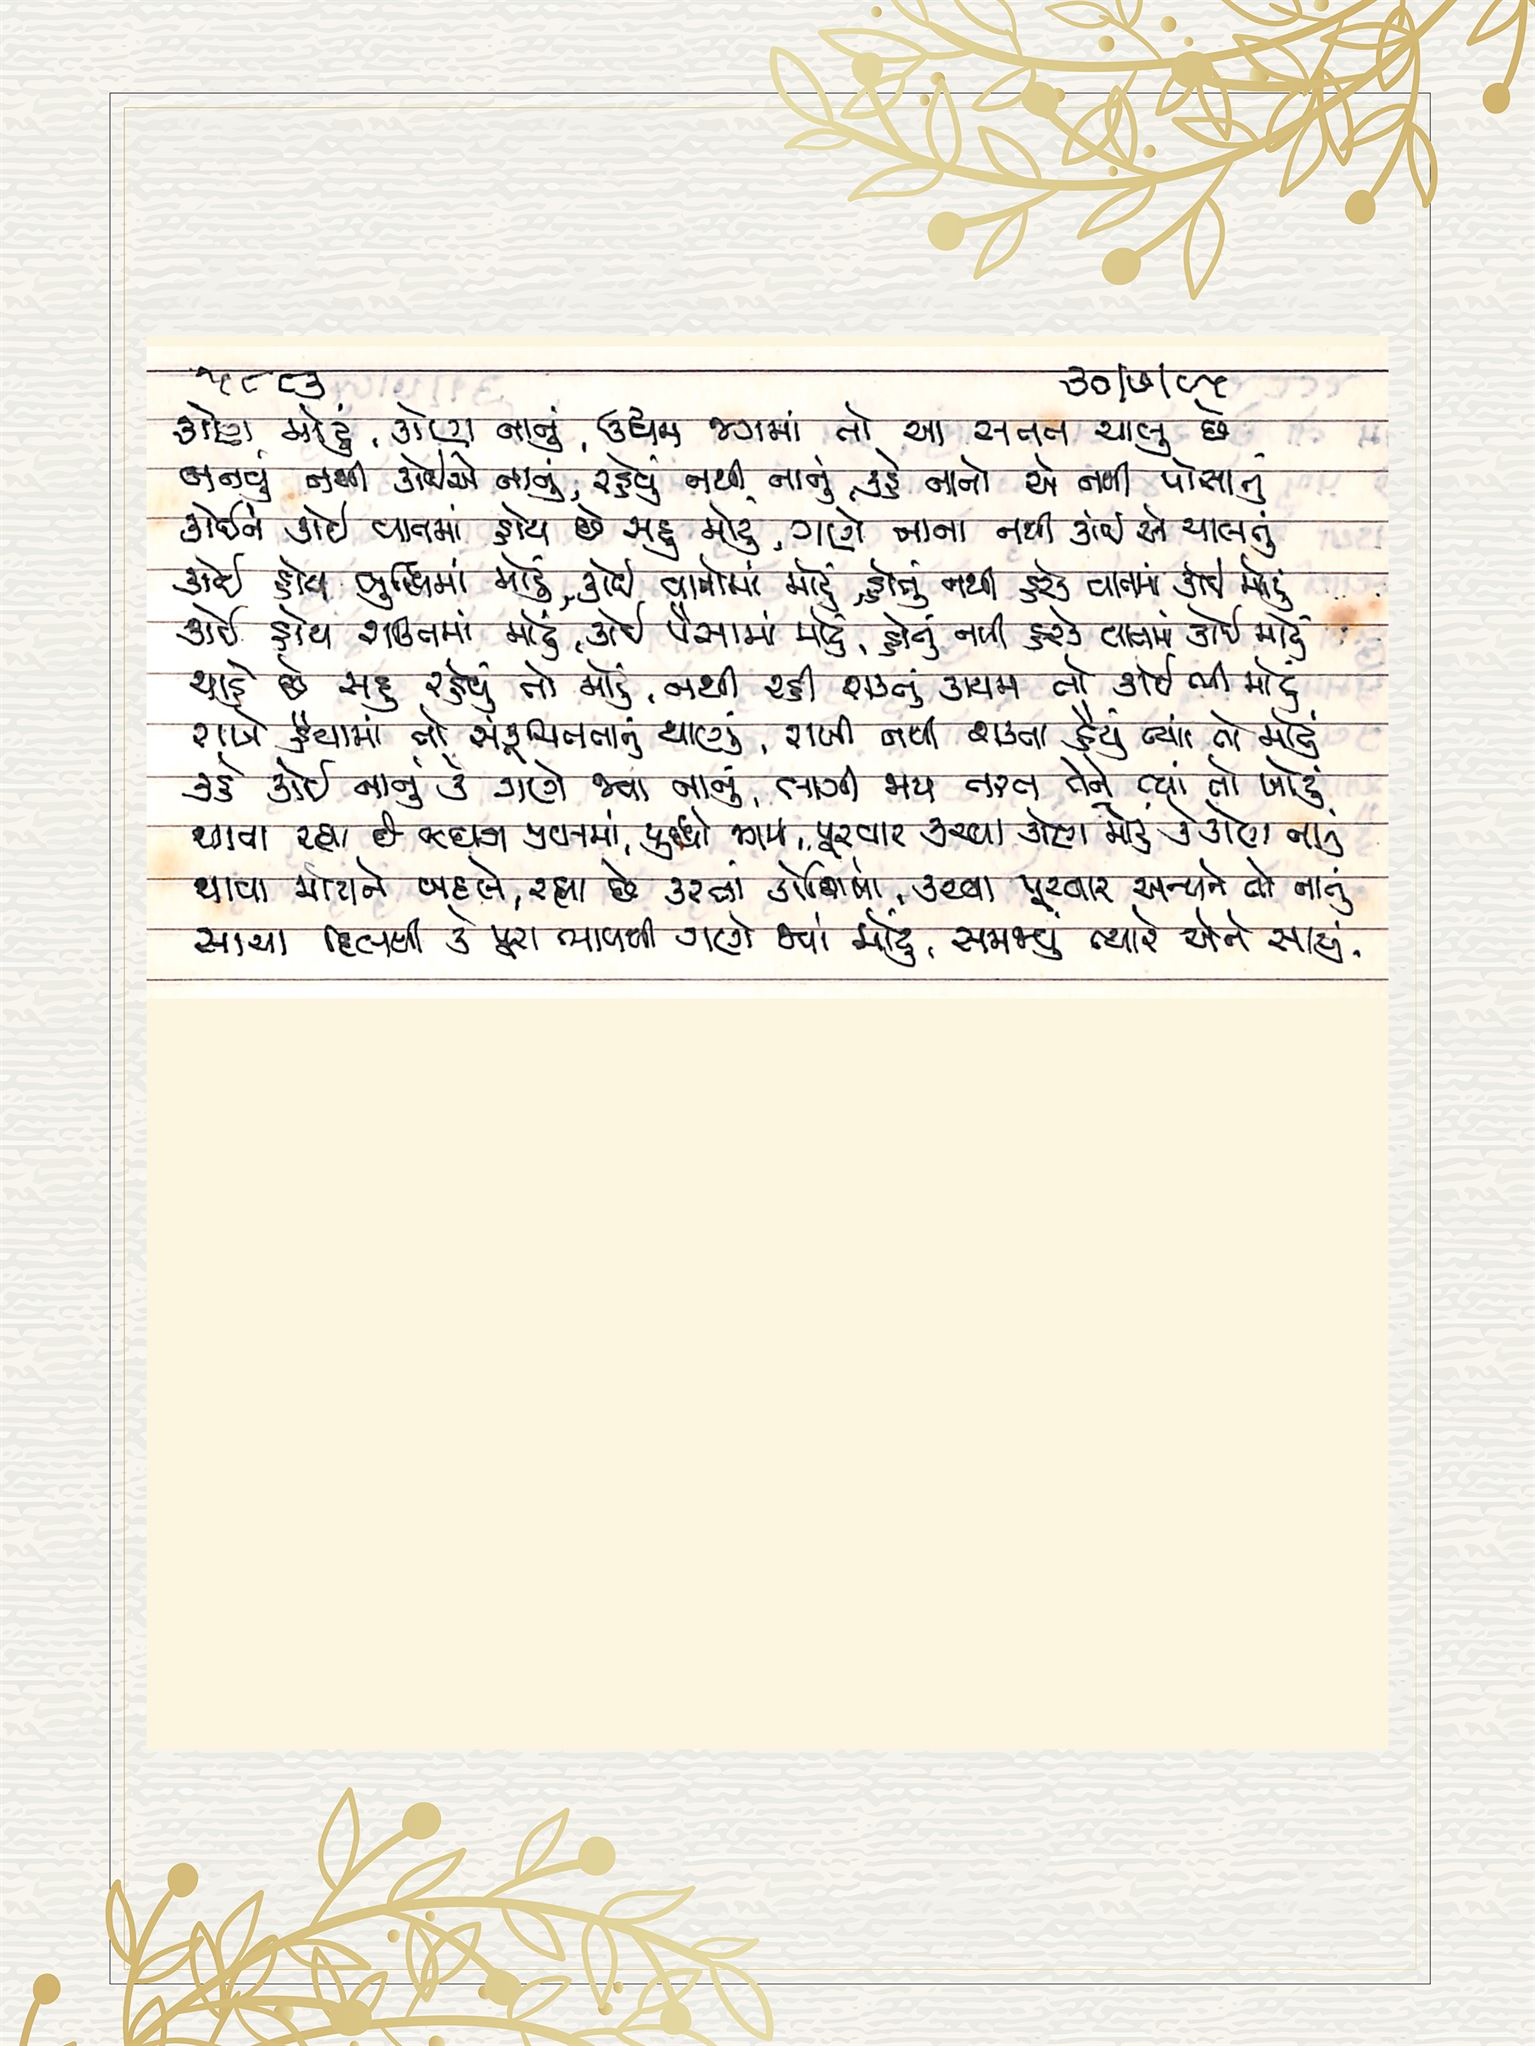 ૫૮૮૩ ૩૦/૭/૯૫
કોણ મોટું, કોણ નાનું, ઉદ્યમ જગમાં તો આ સતત ચાલુ છે
બનવું નથી કોઈએ નાનું, રહેવું નથી નાનું, કહે નાનો એ નથી પોસાતું
કોઈને કોઈ વાતમાં હોય છે સહુ મોટું, ગણે નાના નથી કાંઈ એ ચાલતું
કોઈ હોય બુદ્ધિમાં મોટું, કોઈ વાતોમાં મોટું, હોતું નથી હરેક વાતમાં કોઈ મોટું
કોઈ હોય શક્તિમાં મોટું, કોઈ પૈસામાં મોટું, હોતું નથી હરેક વાતમાં કોઈ મોટું
ચાહે છે સહુ રહેવું તો મોટું, નથી રહી શકતું કાયમ તો કોઈ ભી મોટું
રાખે હૈયામાં તો સંકુચિતતાનું થાણું, રાખી નથી શકતા હૈયું ત્યાં તો મોટું
કહે કોઈ નાનું કે ગણે જ્યાં નાનું, લાગી જાય તરત તેને ત્યાં તો ખોટું
થાવા રહ્યા છે પ્રયત્નમાં, પુરવાર કરવા કોણ મોટું કે કોણ નાનું
થાવા મોટાને બદલે, રહ્યા છે કરતાં કોશિશો, કરવા પુરવાર અન્યને તો નાનું
સાચા દિલથી કે પૂરા ભાવથી ગણે જ્યાં મોટું, સમજવું ત્યારે એને સાચું.